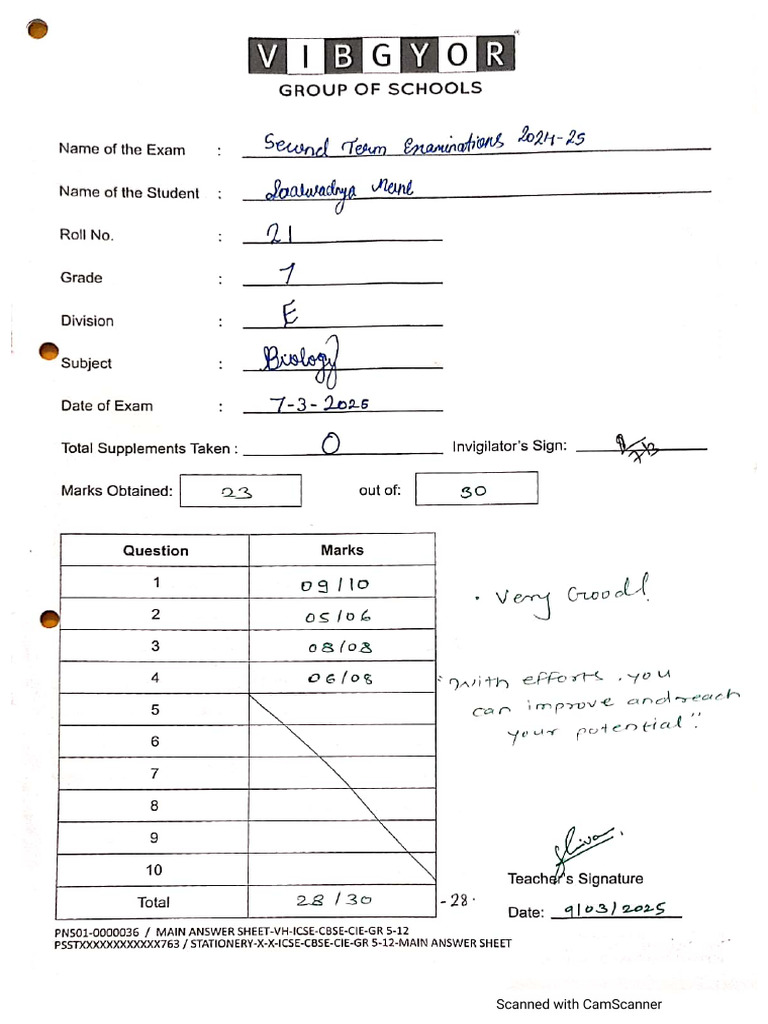 VIBGYOR
GROUP OF SCHOOLS
Name of the Exam : Second Term Examinations 2024-25
Name of the Student :
Roll No. : 21
Grade : 7
Division : E
Subject : Biology
Date of Exam : 7-3-2025
Total Supplements Taken : 0 Invigilator's Sign:
Marks Obtained: 23 out of: 30
Question Marks
1 09/10
2 05/06
3 08/08
4 06/08
5
6
7
8
9
10
Total 28/30 -28.
Very Good!
"With efforts, you
can improve and reach
your potential".
Teacher's Signature
Date: 9/03/2025
PN501-0000036 / MAIN ANSWER SHEET-VH-ICSE-CBSE-CIE-GR 5-12
PSSTXXXXXXXXXXXX763 / STATIONERY-X-X-ICSE-CBSE-CIE-GR 5-12-MAIN ANSWER SHEET
Scanned with CamScanner